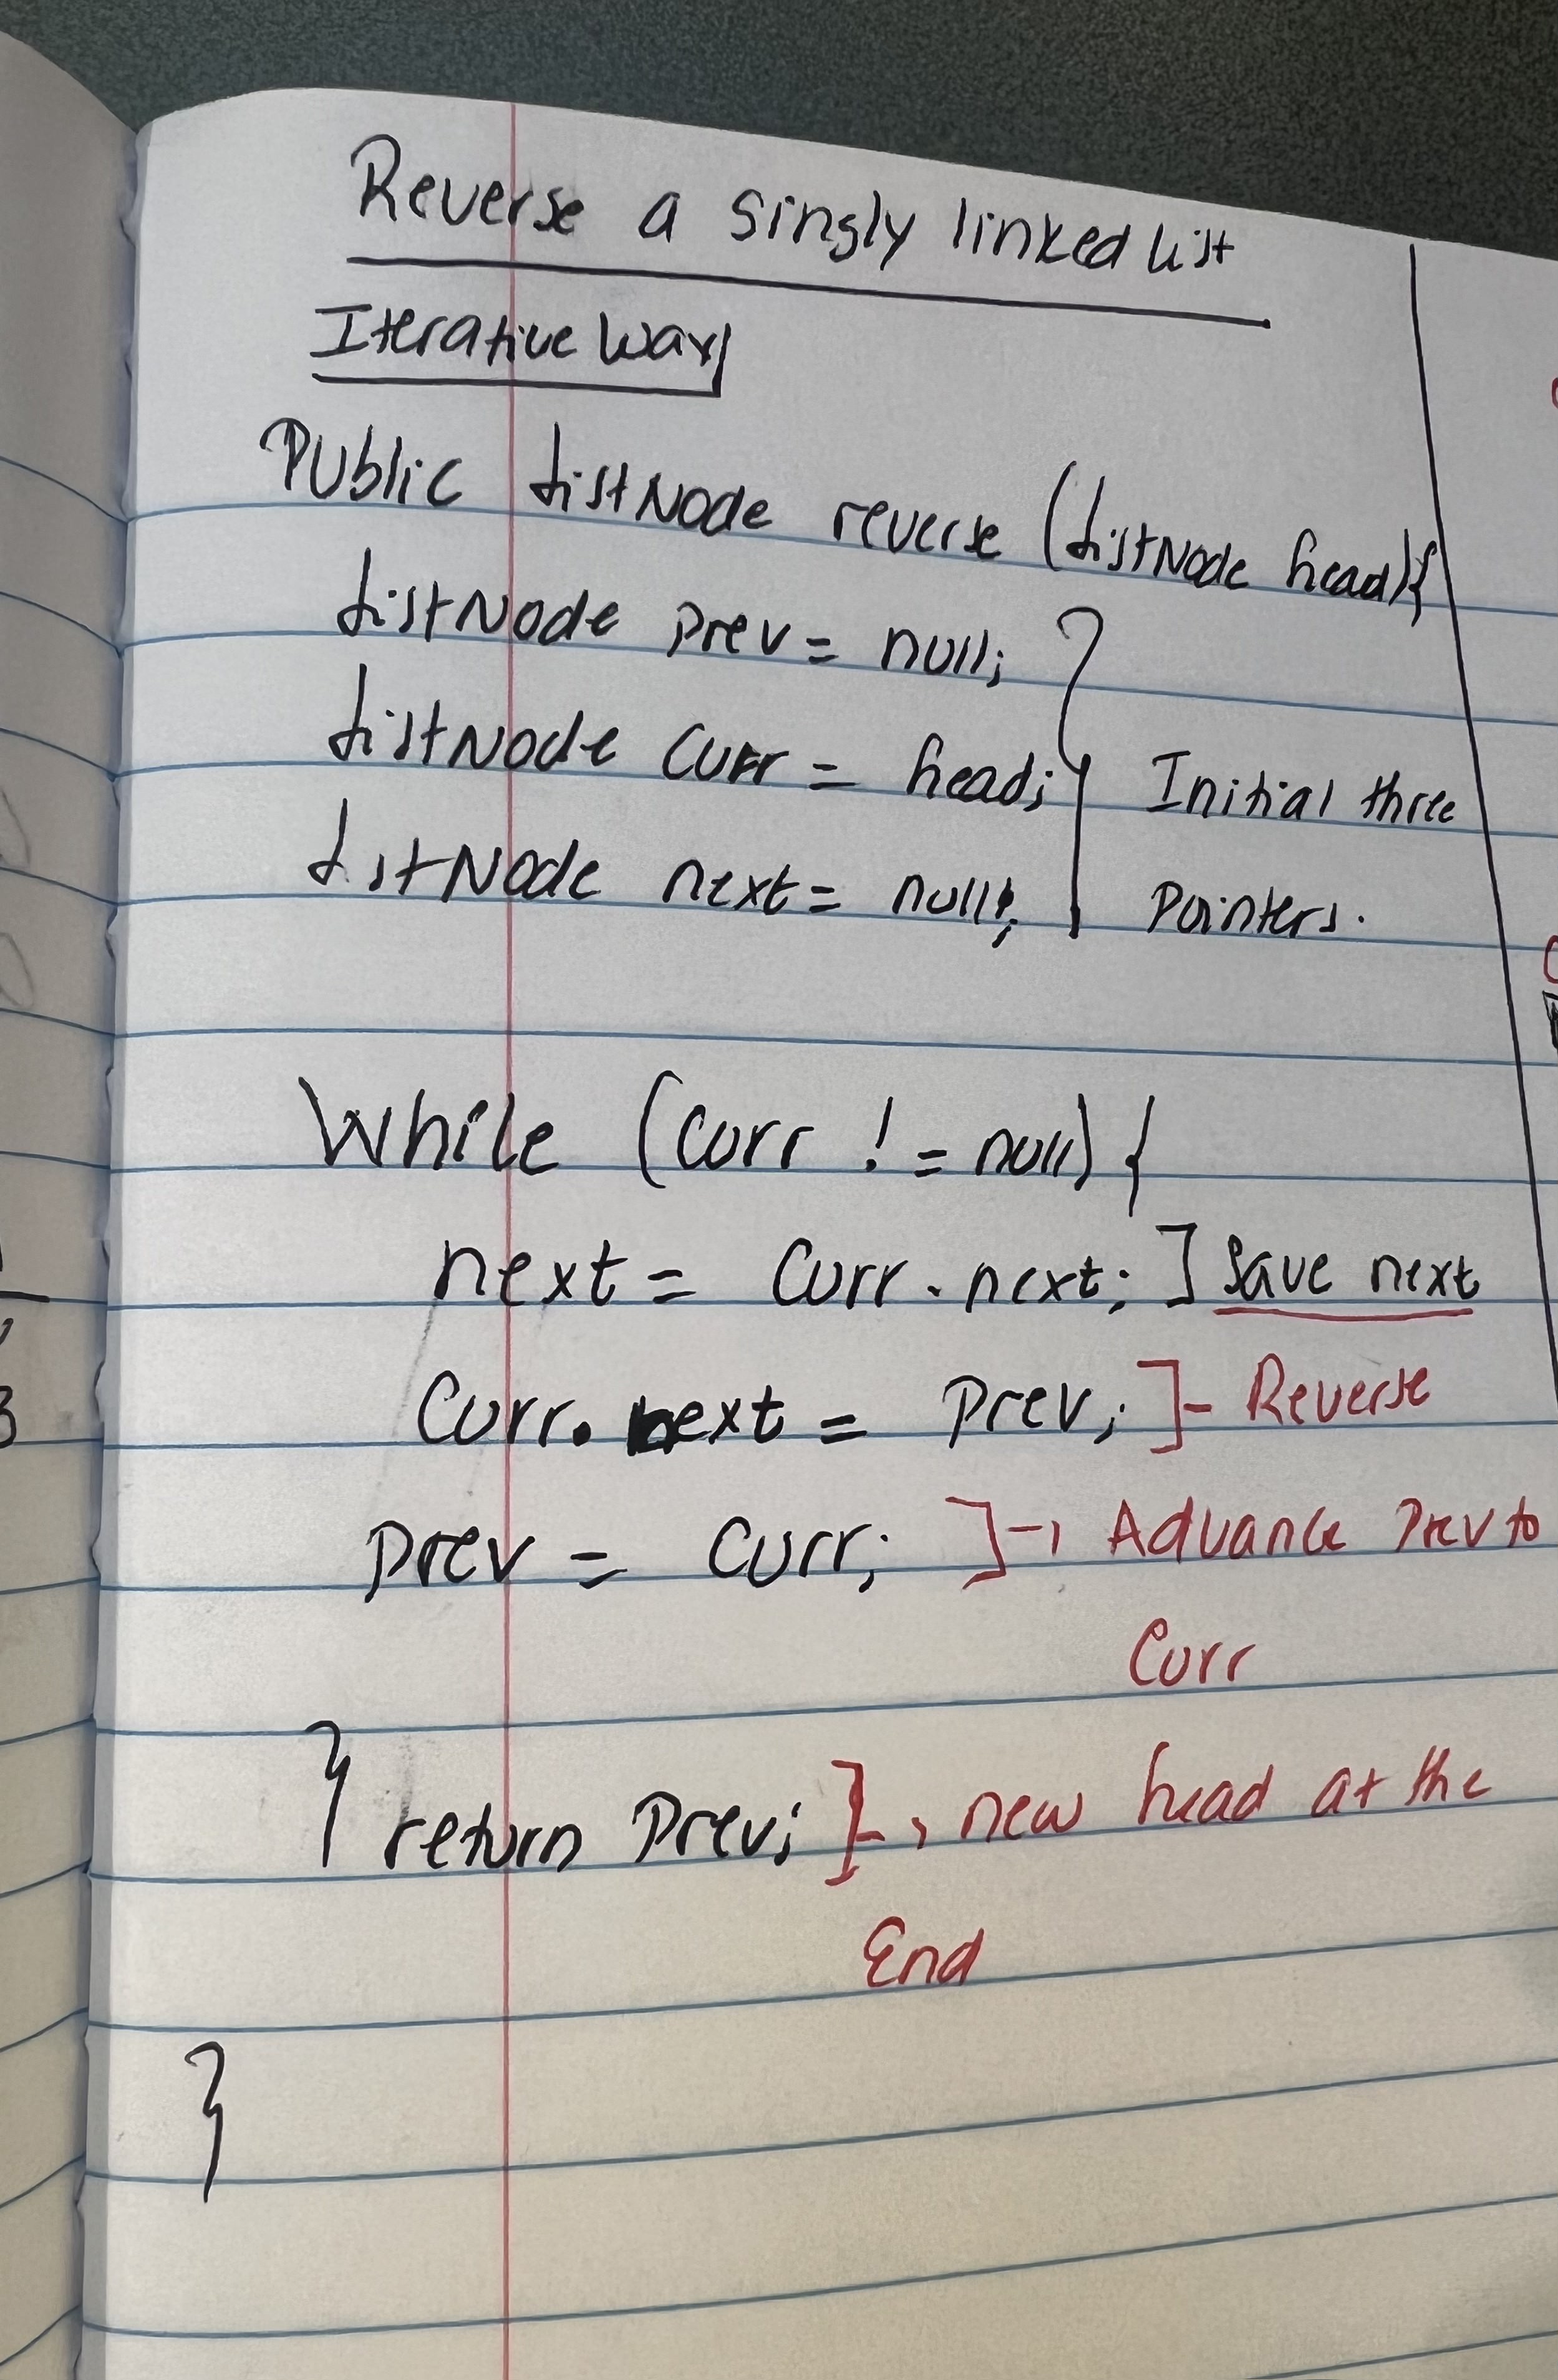 Reverse a singly linked list
Iterative Way
Public ListNode reverse (ListNode head){
ListNode prev = null;
ListNode curr = head; } Initial three
ListNode next = null; Pointers.
While (curr != null) {
next = curr.next; ] Save next
Curr.next = prev; ]- Reverse
prev = curr; ]-, Advance Prev to
Curr
} return Prev; ]-, new head at the
End
}